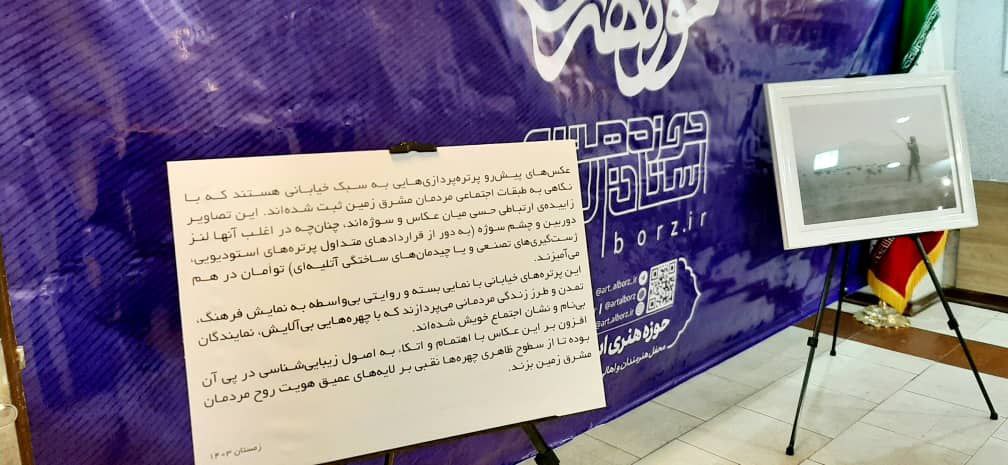 عکس‌های پیش‌رو پرتره‌پردازی‌هایی به سبک خیابانی هستند که با
نگاهی به طبقات اجتماعی مردمان مشرق زمین ثبت شده‌اند. این تصاویر
زاییده‌ی ارتباطی حسی میان عکاس و سوژه‌اند، چنان‌چه در اغلب آنها لنز
دوربین و چشم سوژه (به دور از قراردادهای متداول پرتره‌های استودیویی،
ژست‌گیری‌های تصنعی و یا چیدمان‌های ساختگی آتلیه‌ای) توأمان در هم
می‌آمیزند.
این پرتره‌های خیابانی با نمایی بسته و روایتی بی‌واسطه به نمایش فرهنگ،
تمدن و طرز زندگی مردمانی می‌پردازند که با چهره‌هایی بی‌آلایش، نمایندگان
بی‌نام و نشان اجتماع خویش شده‌اند.
افزون بر این عکاس با اهتمام و اتکاء به اصول زیبایی‌شناسی در پی آن
بوده تا از سطوح ظاهری چهره‌ها نقبی بر لایه‌های عمیق هویت روح مردمان
مشرق زمین بزند.
زمستان ۱۴۰۳
حوزه هنری
استان
borz.ir
@art.alborz
@artalborz
@art.alborz.ir
حوزه هنری
محفل هنرمندان و اهالی